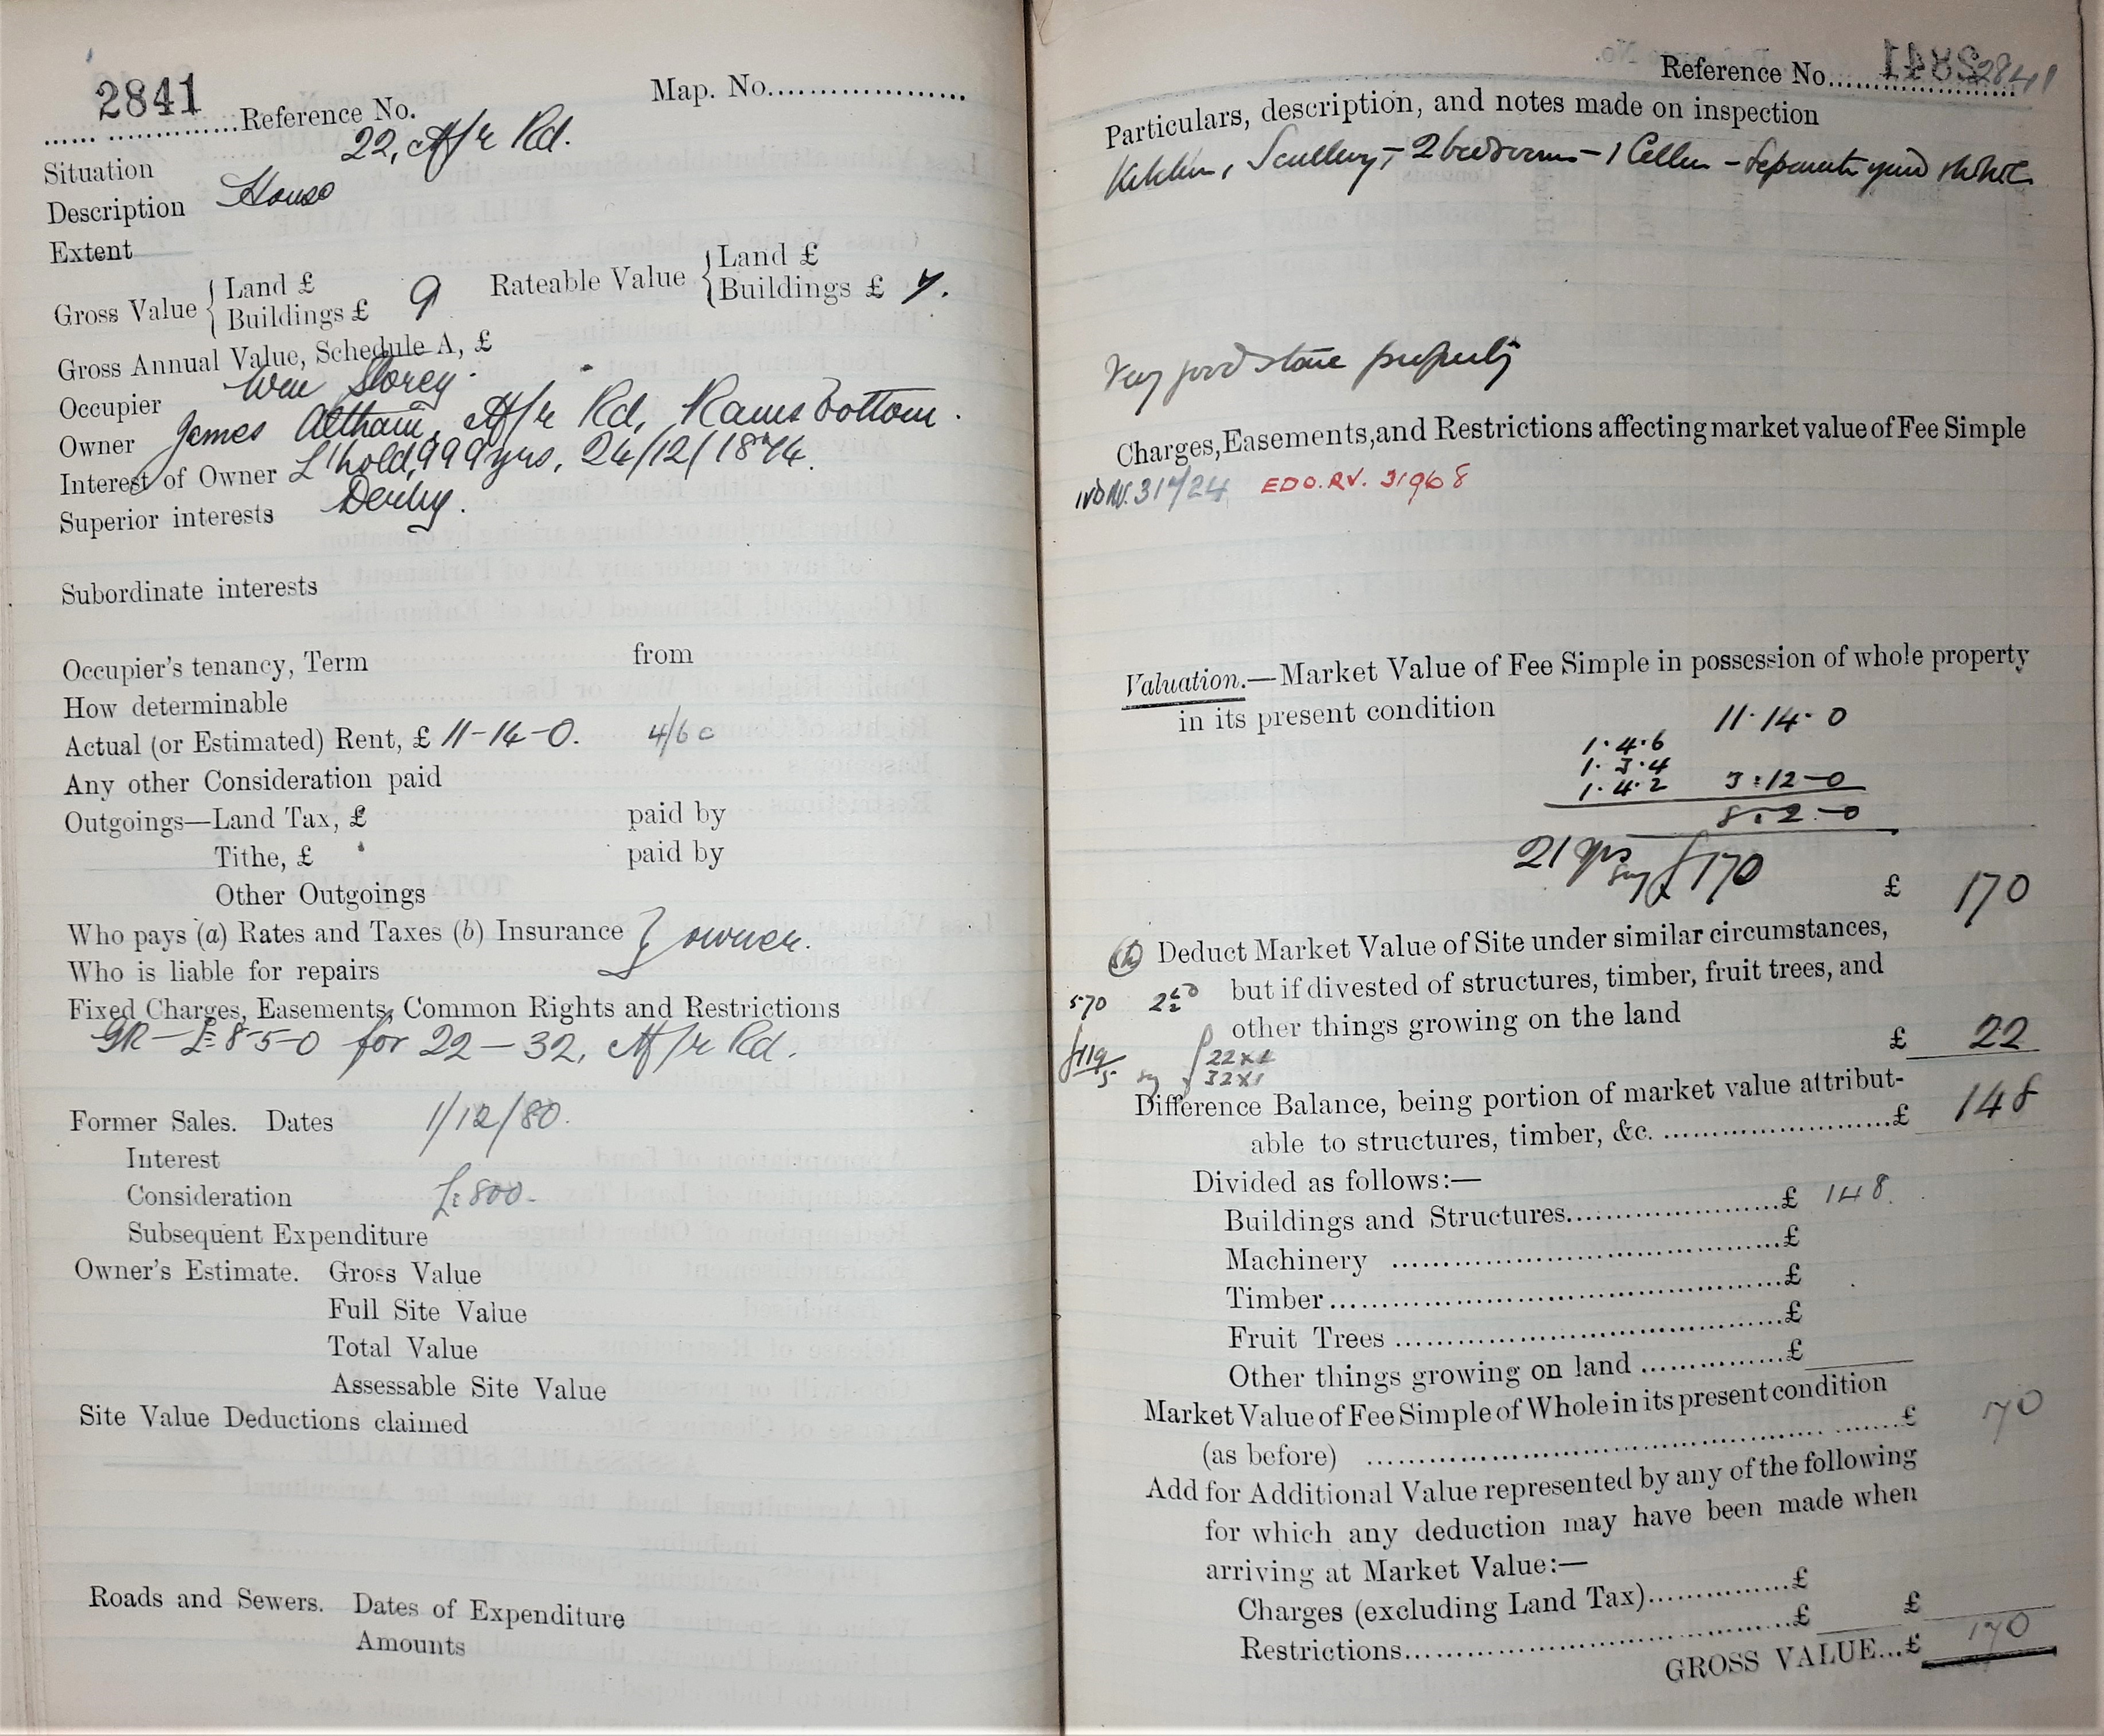 2841
Reference No. Map. No.
Situation 22, A/r Rd.
Description House
Extent
Gross Value { Land £
Buildings £ 9
Rateable Value { Land £
Buildings £ 7.
Gross Annual Value, Schedule A, £
Occupier Wm Storey.
Owner James Altham, A/r Rd, Ramsbottom.
Interest of Owner L'hold, 999 yrs, 24/12/1874.
Superior interests Derby.
Subordinate interests
Occupier's tenancy, Term from
How determinable
Actual (or Estimated) Rent, £ 11-14-0. 4/6 c
Any other Consideration paid
Outgoings—Land Tax, £ paid by
Tithe, £ paid by
Other Outgoings
Who pays (a) Rates and Taxes (b) Insurance } owner.
Who is liable for repairs
Fixed Charges, Easements, Common Rights and Restrictions
GR — £8-5-0 for 22 — 32, A/r Rd.
Former Sales. Dates 1/12/80.
Interest
Consideration £800-
Subsequent Expenditure
Owner's Estimate. Gross Value
Full Site Value
Total Value
Assessable Site Value
Site Value Deductions claimed
Roads and Sewers. Dates of Expenditure
Amounts
Reference No. 2841
Particulars, description, and notes made on inspection
Kitchen, Scullery, - 2 bedrooms - 1 Cellar - Separate yard
Very good stone property
Charges, Easements, and Restrictions affecting market value of Fee Simple
317/24 EDO. RV. 31968
Valuation.—Market Value of Fee Simple in possession of whole property
in its present condition 11. 14. 0
1. 4. 6
1. 3. 4
1. 4. 2 3: 12-0
8: 2-0
21 yrs say £170
£ 170
Deduct Market Value of Site under similar circumstances,
but if divested of structures, timber, fruit trees, and
other things growing on the land
570
£ 22
22 x 1
32 x 1
Difference Balance, being portion of market value attribut-
able to structures, timber, &c. £ 148
Divided as follows:—
Buildings and Structures £ 148.
Machinery £
Timber £
Fruit Trees £
Other things growing on land £
Market Value of Fee Simple of Whole in its present condition
(as before) £ 170
Add for Additional Value represented by any of the following
for which any deduction may have been made when
arriving at Market Value:—
Charges (excluding Land Tax) £
Restrictions £ £
GROSS VALUE...£ 170